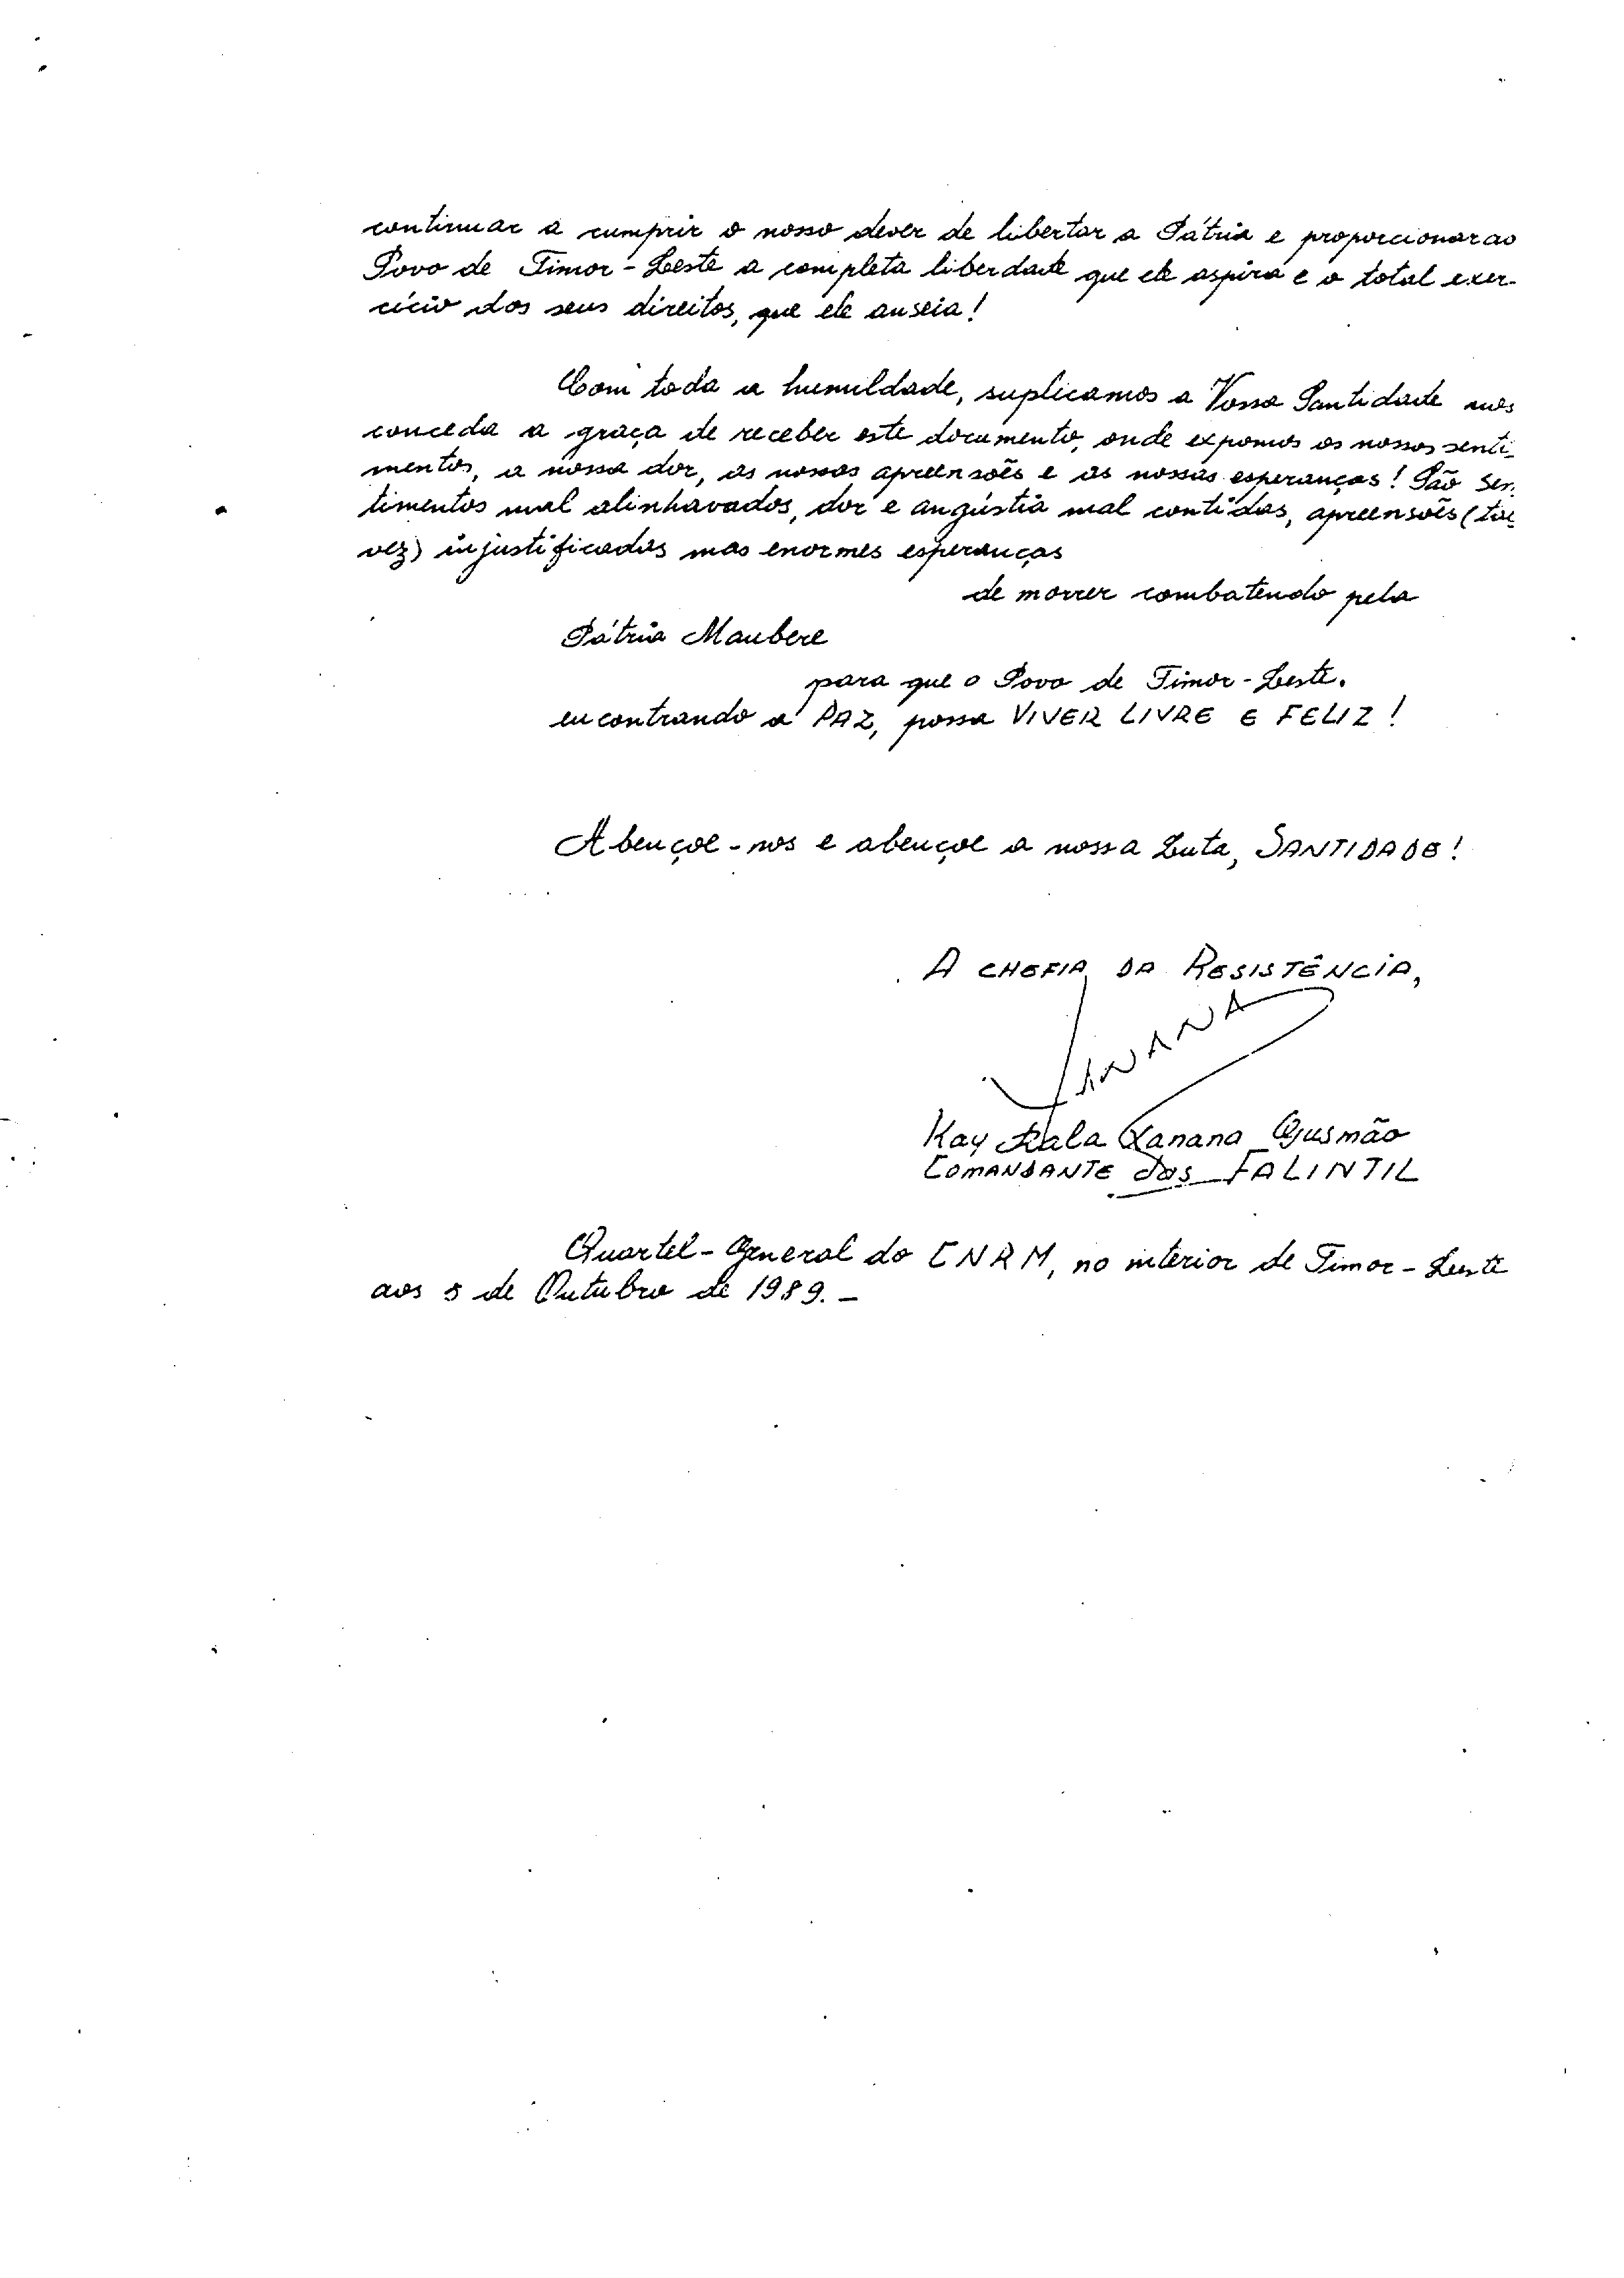 continuar a cumprir o nosso dever de libertar a Pátria e proporcionar ao
Povo de Timor-Leste a completa liberdade que ele aspira e o total exer-
cício dos seus direitos, que ele anseia!
Com toda a humildade, suplicamos a Vossa Santidade nos
conceda a graça de receber este documento, onde expomos os nossos senti-
mentos, a nossa dor, as nossas apreensões e as nossas esperanças! São sen-
timentos mal alinhavados, dor e angústia mal contidas, apreensões (tal
vez) injustificadas mas enormes esperanças
de morrer combatendo pela
Pátria Maubere
para que o Povo de Timor-Leste,
encontrando a PAZ, possa VIVER LIVRE E FELIZ!
Abençoe-nos e abençoe a nossa Luta, SANTIDADE!
A CHEFIA DA RESISTÊNCIA,
XANANA
Kay Rala Xanana Gusmão
COMANDANTE das FALINTIL
Quartel-General do CNRM, no interior de Timor-Leste
aos 5 de Outubro de 1989.-